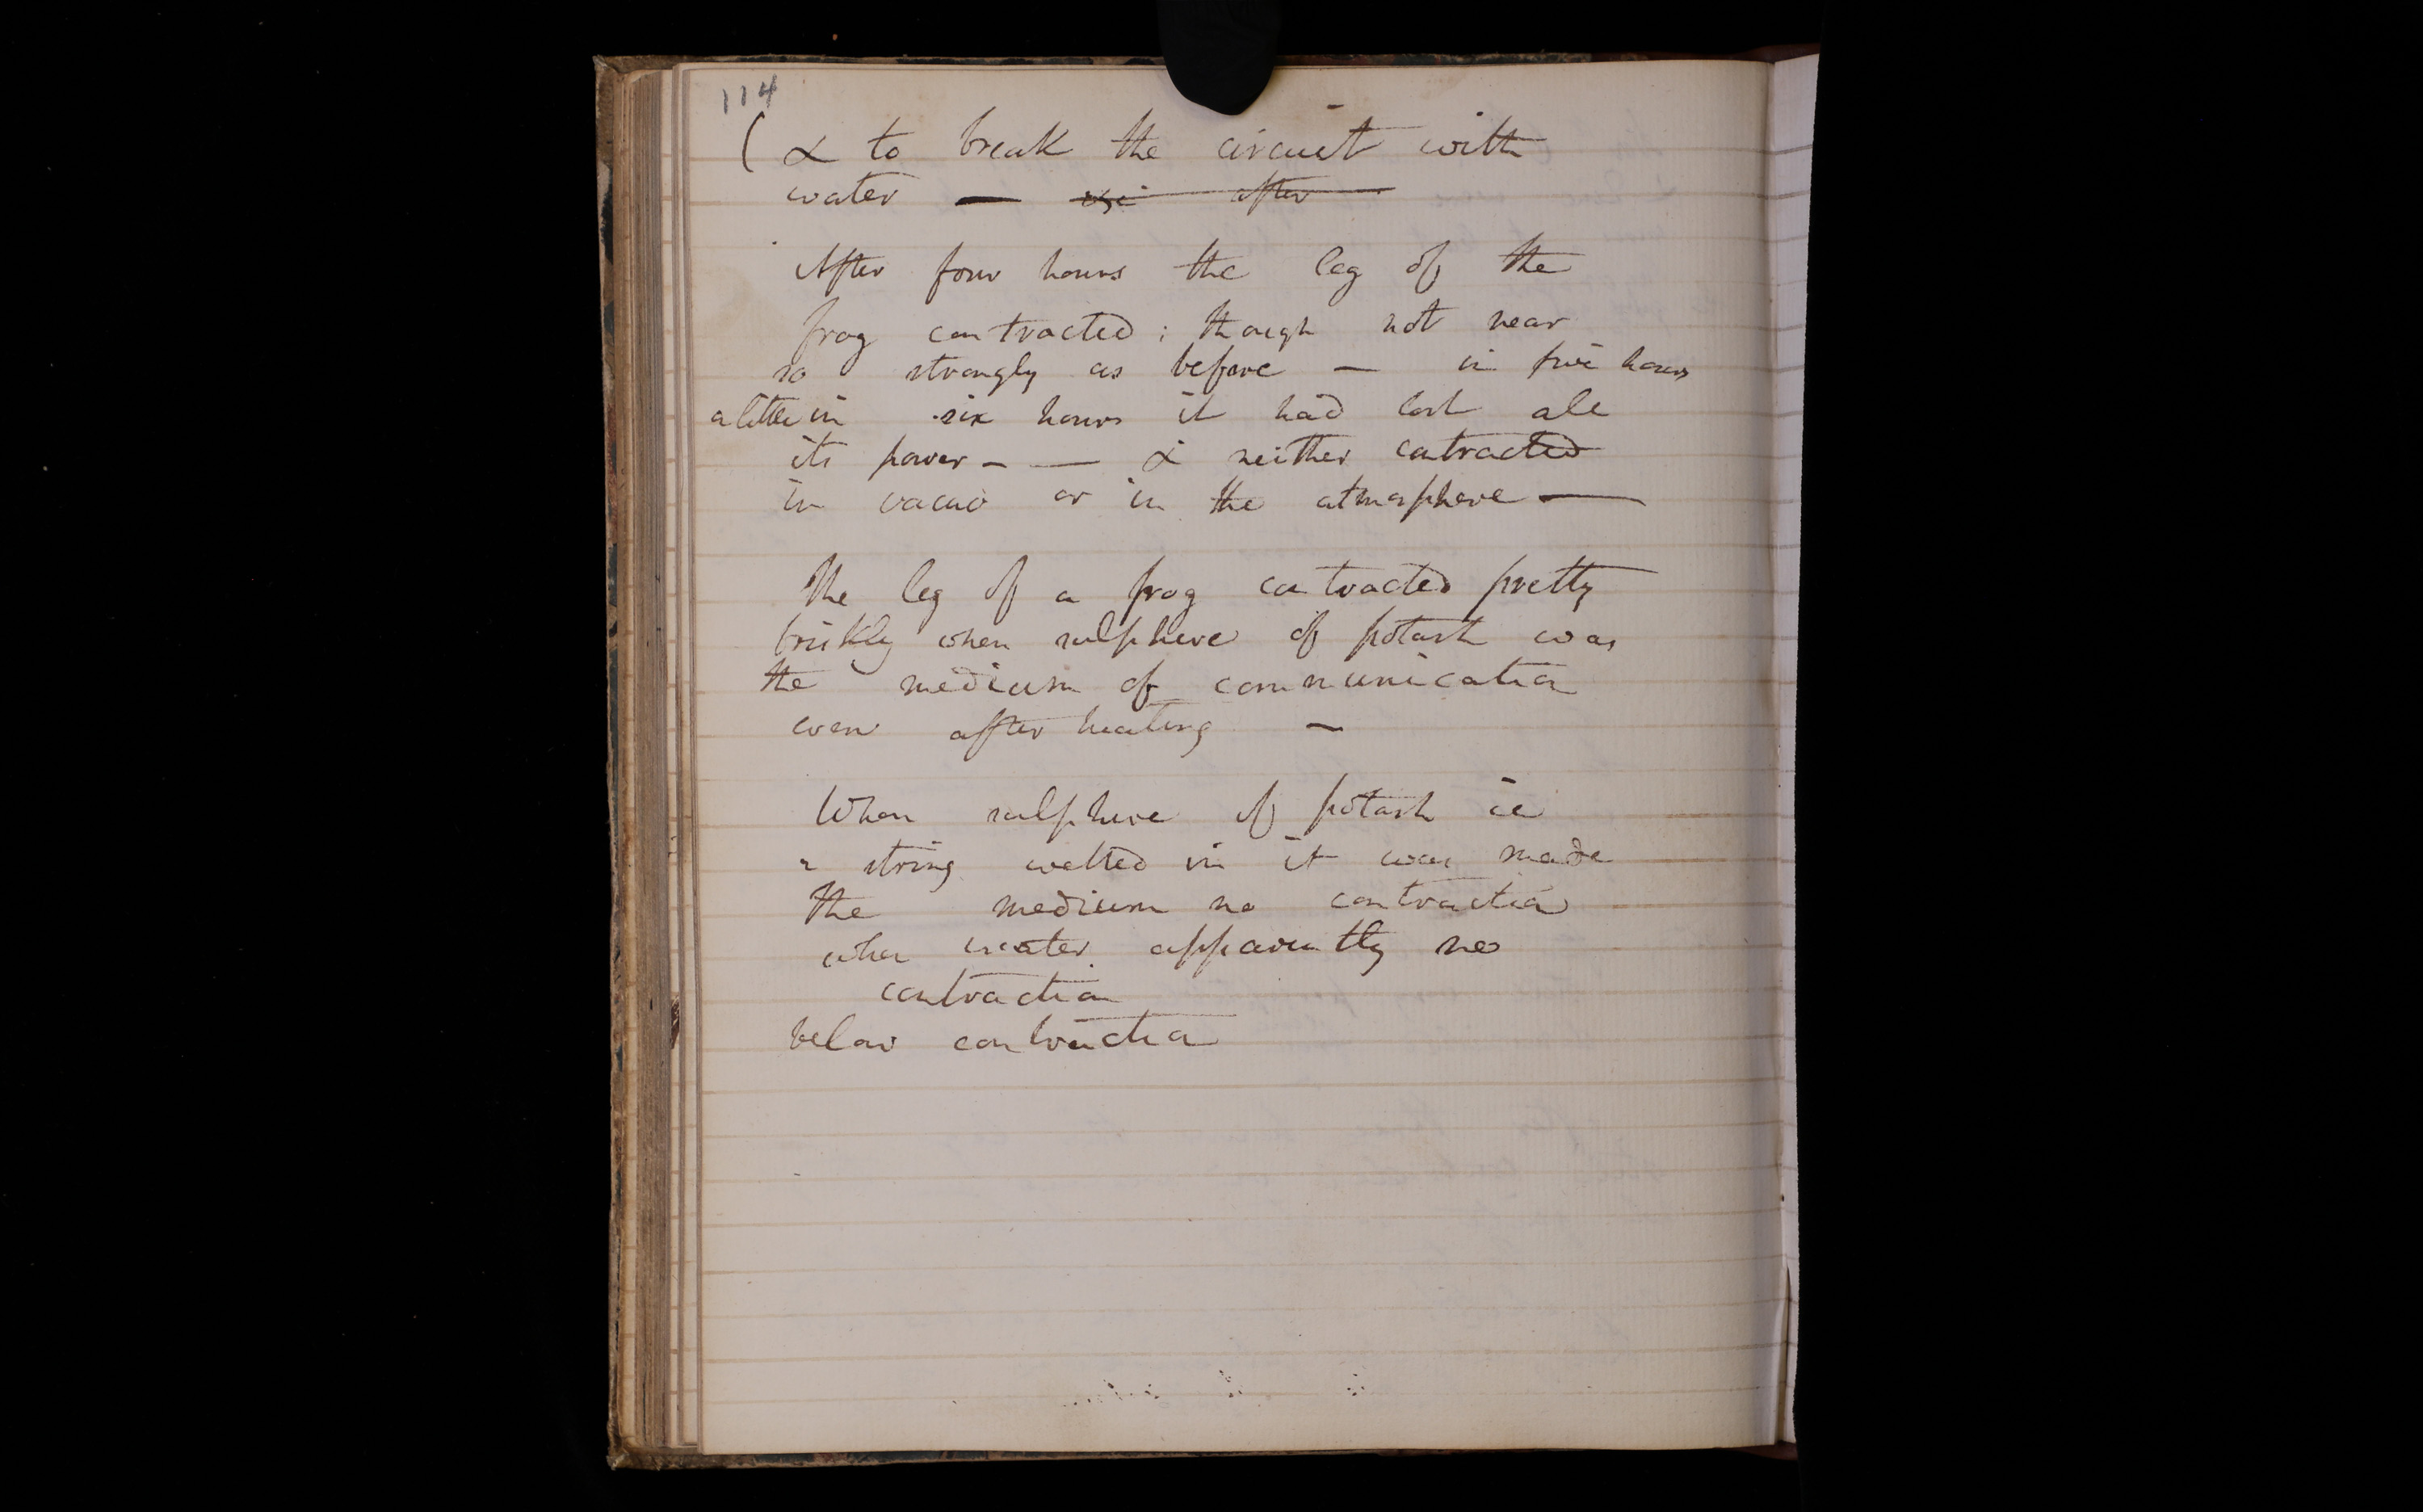 114
( & to break the circuit with
water — after
After four hours the leg of the
frog contracted; though not near
so strongly as before — in five hours
a little in six hours it had lost all
its power - — & neither contracted
in vacuo or in the atmosphere —
The leg of a frog contracted pretty
briskly when sulphure of potash was
the medium of communication
even after heating —
When sulphure of potash ie
a string wetted in it was made
the medium no contraction
when water apparently no
contraction
below contraction